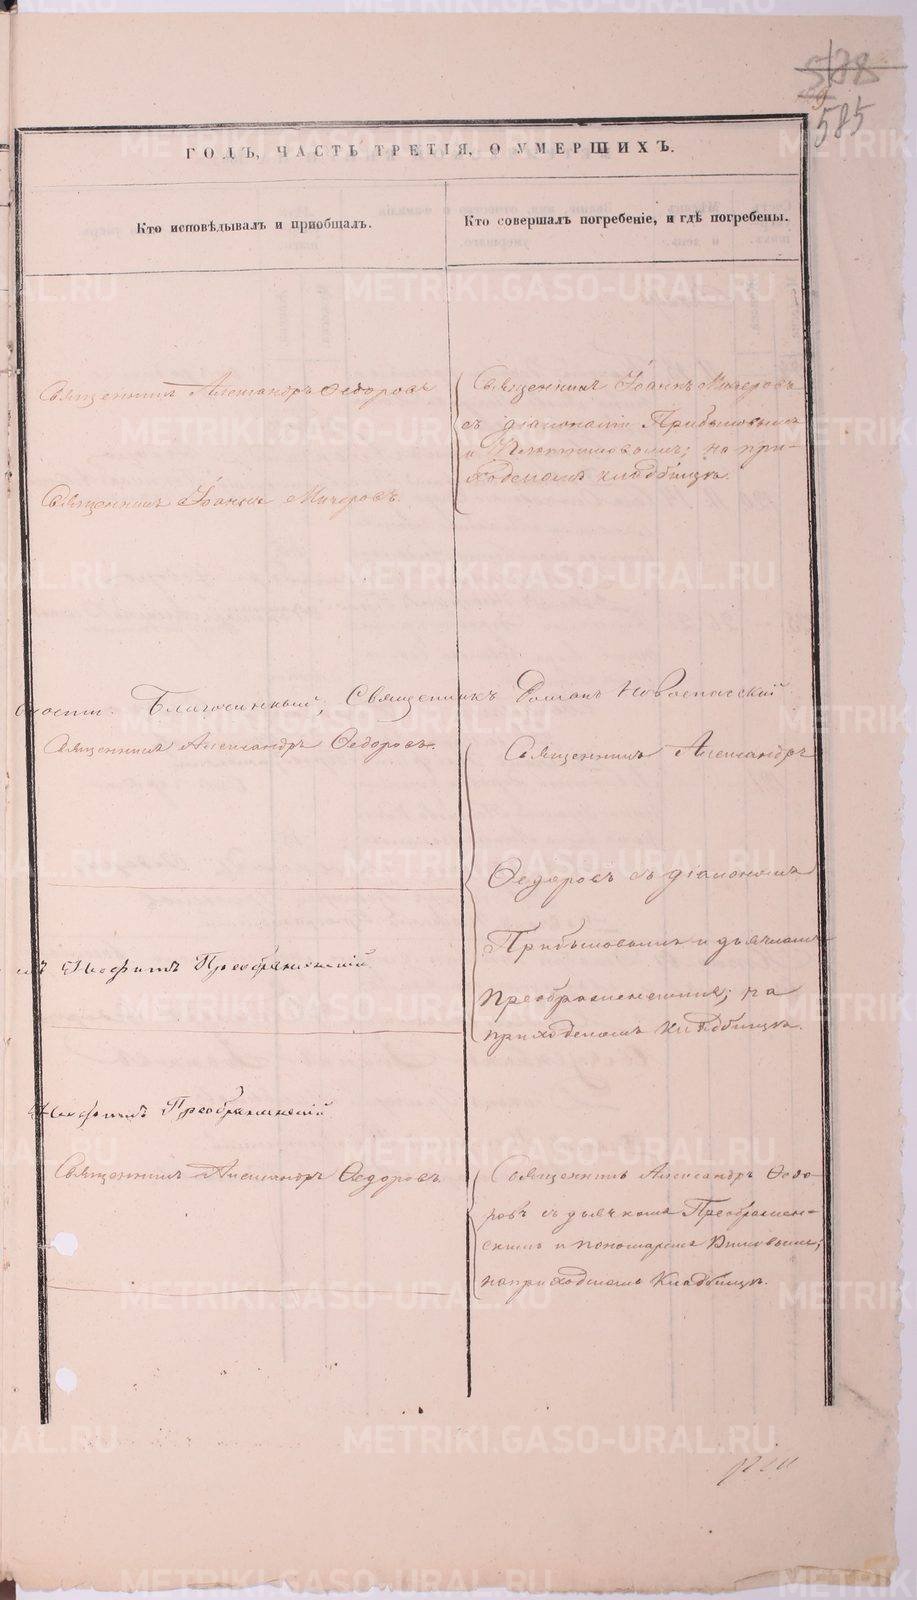 578
585
ГОДЪ, ЧАСТЬ ТРЕТІЯ, О УМЕРШИХЪ.
Кто исповѣдывалъ и приобщалъ.
Кто совершалъ погребеніе, и гдѣ погребены.
Священникъ Александръ Ѳедоровъ
Священникъ Іоаннъ Мичеровъ
съ діакономъ Прибыловымъ
и на при-
ходскомъ кладбищѣ.
Священникъ Іоаннъ Мичеровъ.
Благочинный, Священникъ Романъ Новоспасскій
Священникъ Александръ Ѳедоровъ.
Священникъ Александръ
Ѳедоровъ съ діакономъ
Прибыловымъ и дьячкомъ
Преображенскимъ; на
приходскомъ кладбищѣ.
Неофитъ Преображенскій
Неофитъ Преображенскій
Священникъ Александръ Ѳедоровъ.
Священникъ Александръ Ѳедо-
ровъ съ дьячкомъ Преображен-
скимъ и пономаремъ
на приходскомъ Кладбищѣ.
METRIKI.GASO-URAL.RU